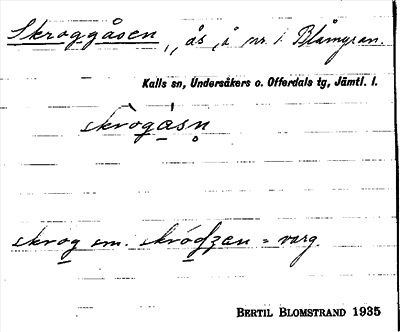 Skroggåsen, ås, å nr. 1. Blåmyran.
Kalls sn, Undersåkers o. Offerdals tg, Jämtl. l.
skrògåsn̥
skrog sm. skródzen = varg.
BERTIL BLOMSTRAND 1935